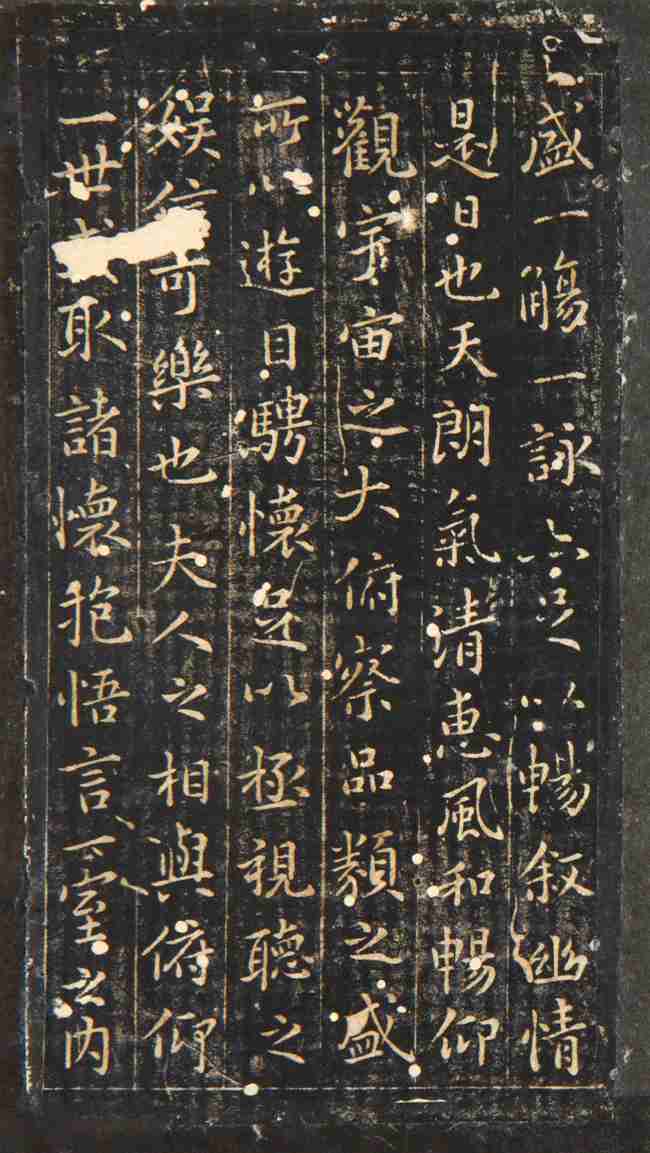 盛一觴一詠亦足以暢叙幽情
是日也天朗氣清恵風和暢仰
觀宇宙之大俯察品類之盛
所以遊目騁懷足以極視聽之
娱信可樂也夫人之相與俯仰
一世或取諸懷抱悟言一室之内